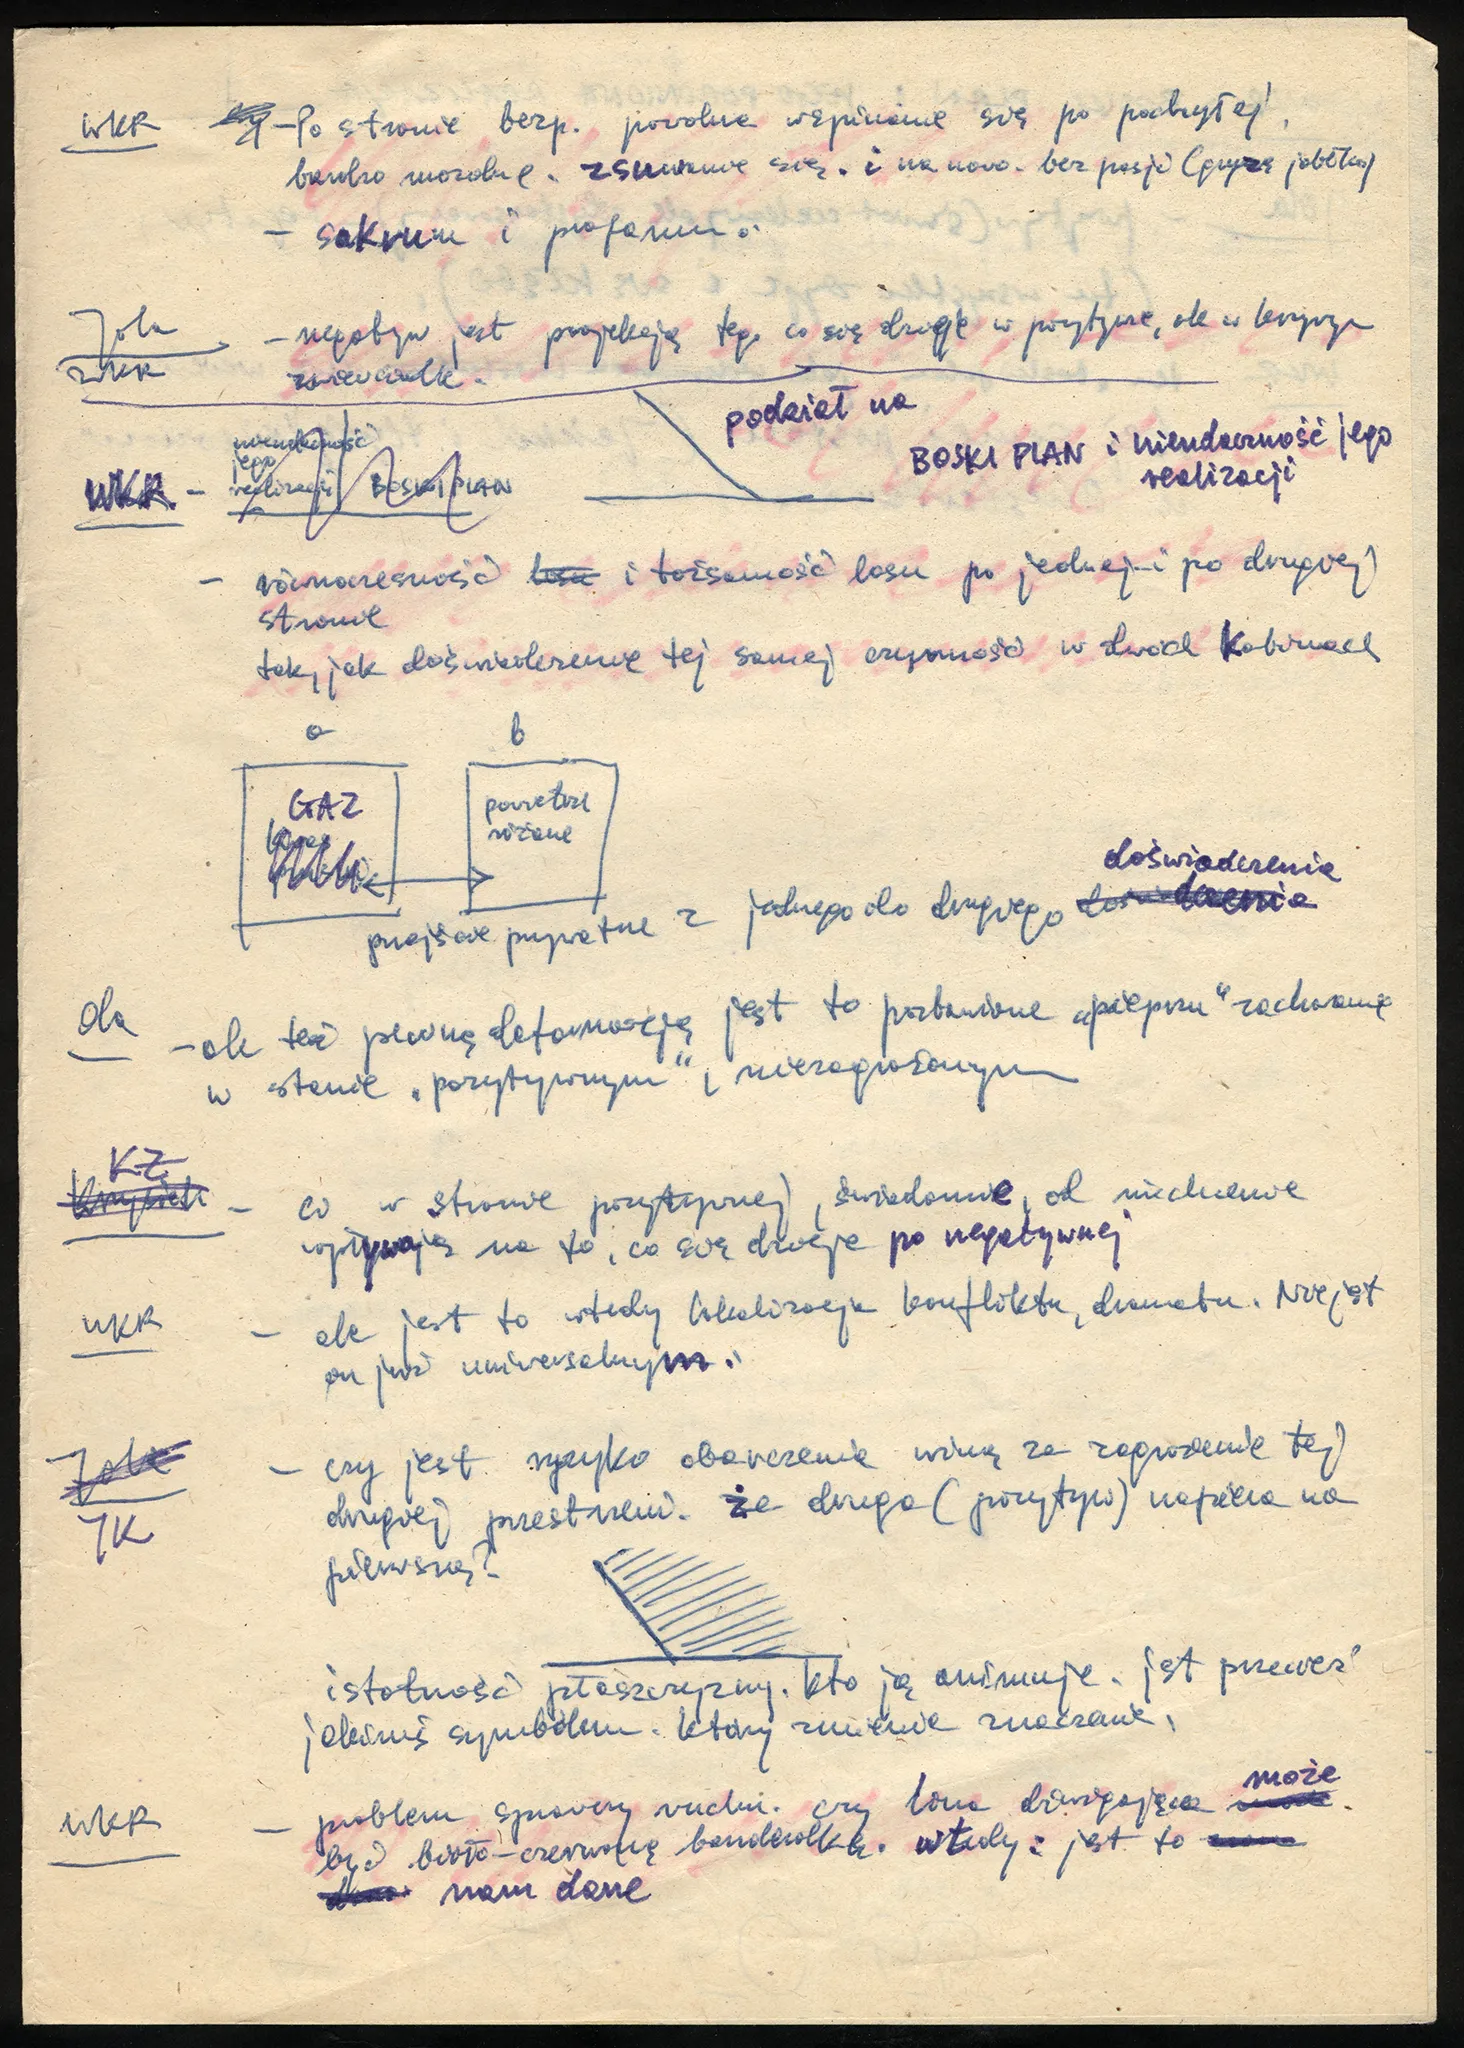 WKR - Po stronie bezp. powolne wspinanie się po
bardzo mozolne. zsuwanie się. i na nowo. bez pasji (gryzą jabłka)
- sakrum i profanum.
Jola - negatyw jest projekcją tego co się dzieje w pozytywie, ale w krzywym
WKR zwierciadle.
podział na
BOSKI PLAN i nieudaczność jego
realizacji
nieudaczność
jego
realizacji BOSKI PLAN
WKR -
- równoczesność losu i tożsamość losu po jednej i po drugiej
stronie
tak, jak doświadczenie tej samej czynność w dwóch kabinach
a b
GAZ
powietrze
różane
doświadczenia
przejście prywatne z jednego do drugiego doświadczenia
Ola
- ale też pewną ofiarnością jest to pozbawione „pieprzu" zachowanie
w stanie „pozytywnym" i niezagrożonym
KZ
Krzysiek - ci w stronie pozytywnej, świadomie, od niechcenia
wpływają na to, co się dzieje po negatywnej
WKR - ale jest to wtedy lokalizacja konfliktu, dramatu. Nie jest
on już uniwersalnym.
Jola - czy jest ryzyko obarczenia winą za zagrożenie tej
JK drugiej przestrzeni. że druga (pozytyw) napiera na
pierwszą?
istotność płaszczyzny. kto ją animuje. jest przecież
jakimś symbolem. który zmienia znaczenie.
może
WKR - problem sprawczy ruchu. czy lina dźwigająca
być biało-czerwoną banderolką. wtedy: jest to
nam dane